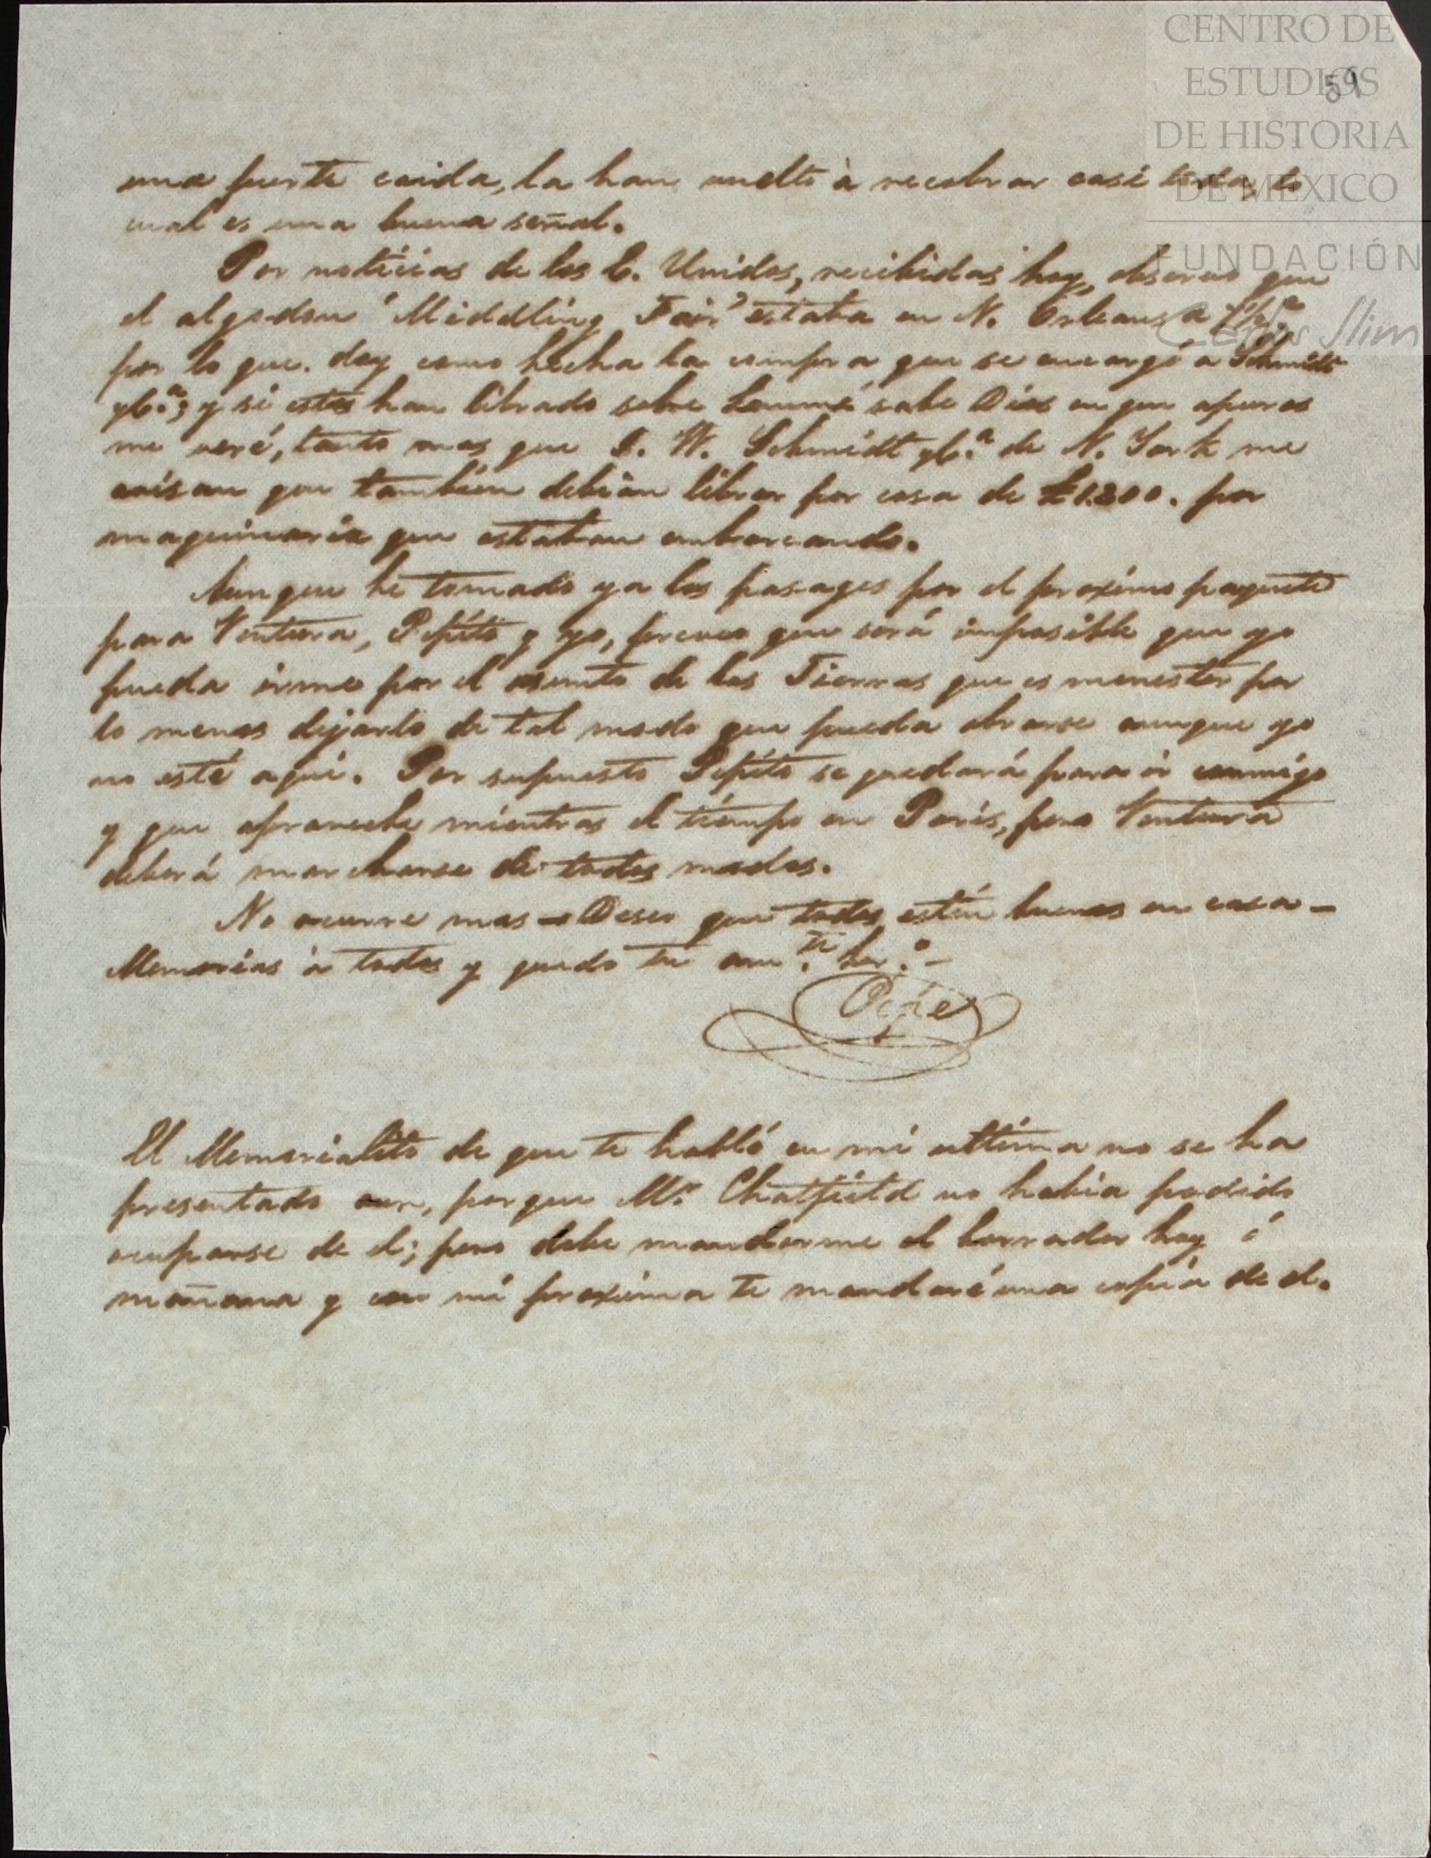 CENTRO DE
ESTUDIOS
DE HISTORIA
DE MEXICO
FUNDACIÓN
Carlos Slim
59
una fuerte caida, la han vuelto à recobrar casi toda, lo
cual es una buena señal.
Por noticias de los E. Unidos, recibidas hoy, observo que
el algodon "Middling Fair" estaba en N. Orleans a
por lo que doy como hecha la compra que se encargó a Schmidt
y Cª; y si estos han librado sobre Lemmé sabe Dios en que apuros
me veré, tanto mas que P. W. Schmidt y Cª de N. York me
avisan que tambien debian librar por cosa de £1.300. por
maquinaria que estaban embarcando.
Aunque he tomado ya los pasages por el proximo paquete
para Ventura, Pepito y yo, preveo que será imposible que yo
pueda irme por el asunto de las Tierras que es menester por
lo menos dejarlo de tal modo que pueda obrarse aunque yo
no esté aquí. Por supuesto Pepito se quedará para ir conmigo
y que aproveche mientras el tiempo en Paris, pero Ventura
deberá marcharse de todos modos.
No ocurre mas - Deseo que todos estén buenos en casa -
Memorias à todos y quedo tu amte. hero. -
Pepe
El Memorialito de que te habló en mi ultima no se ha
presentado aun, porque Mr. Chatfield no habia podido
ocuparse de el; pero debe mandarme el borrador hoy ó
mañana y con mi proxima te mandaré una copia de el.